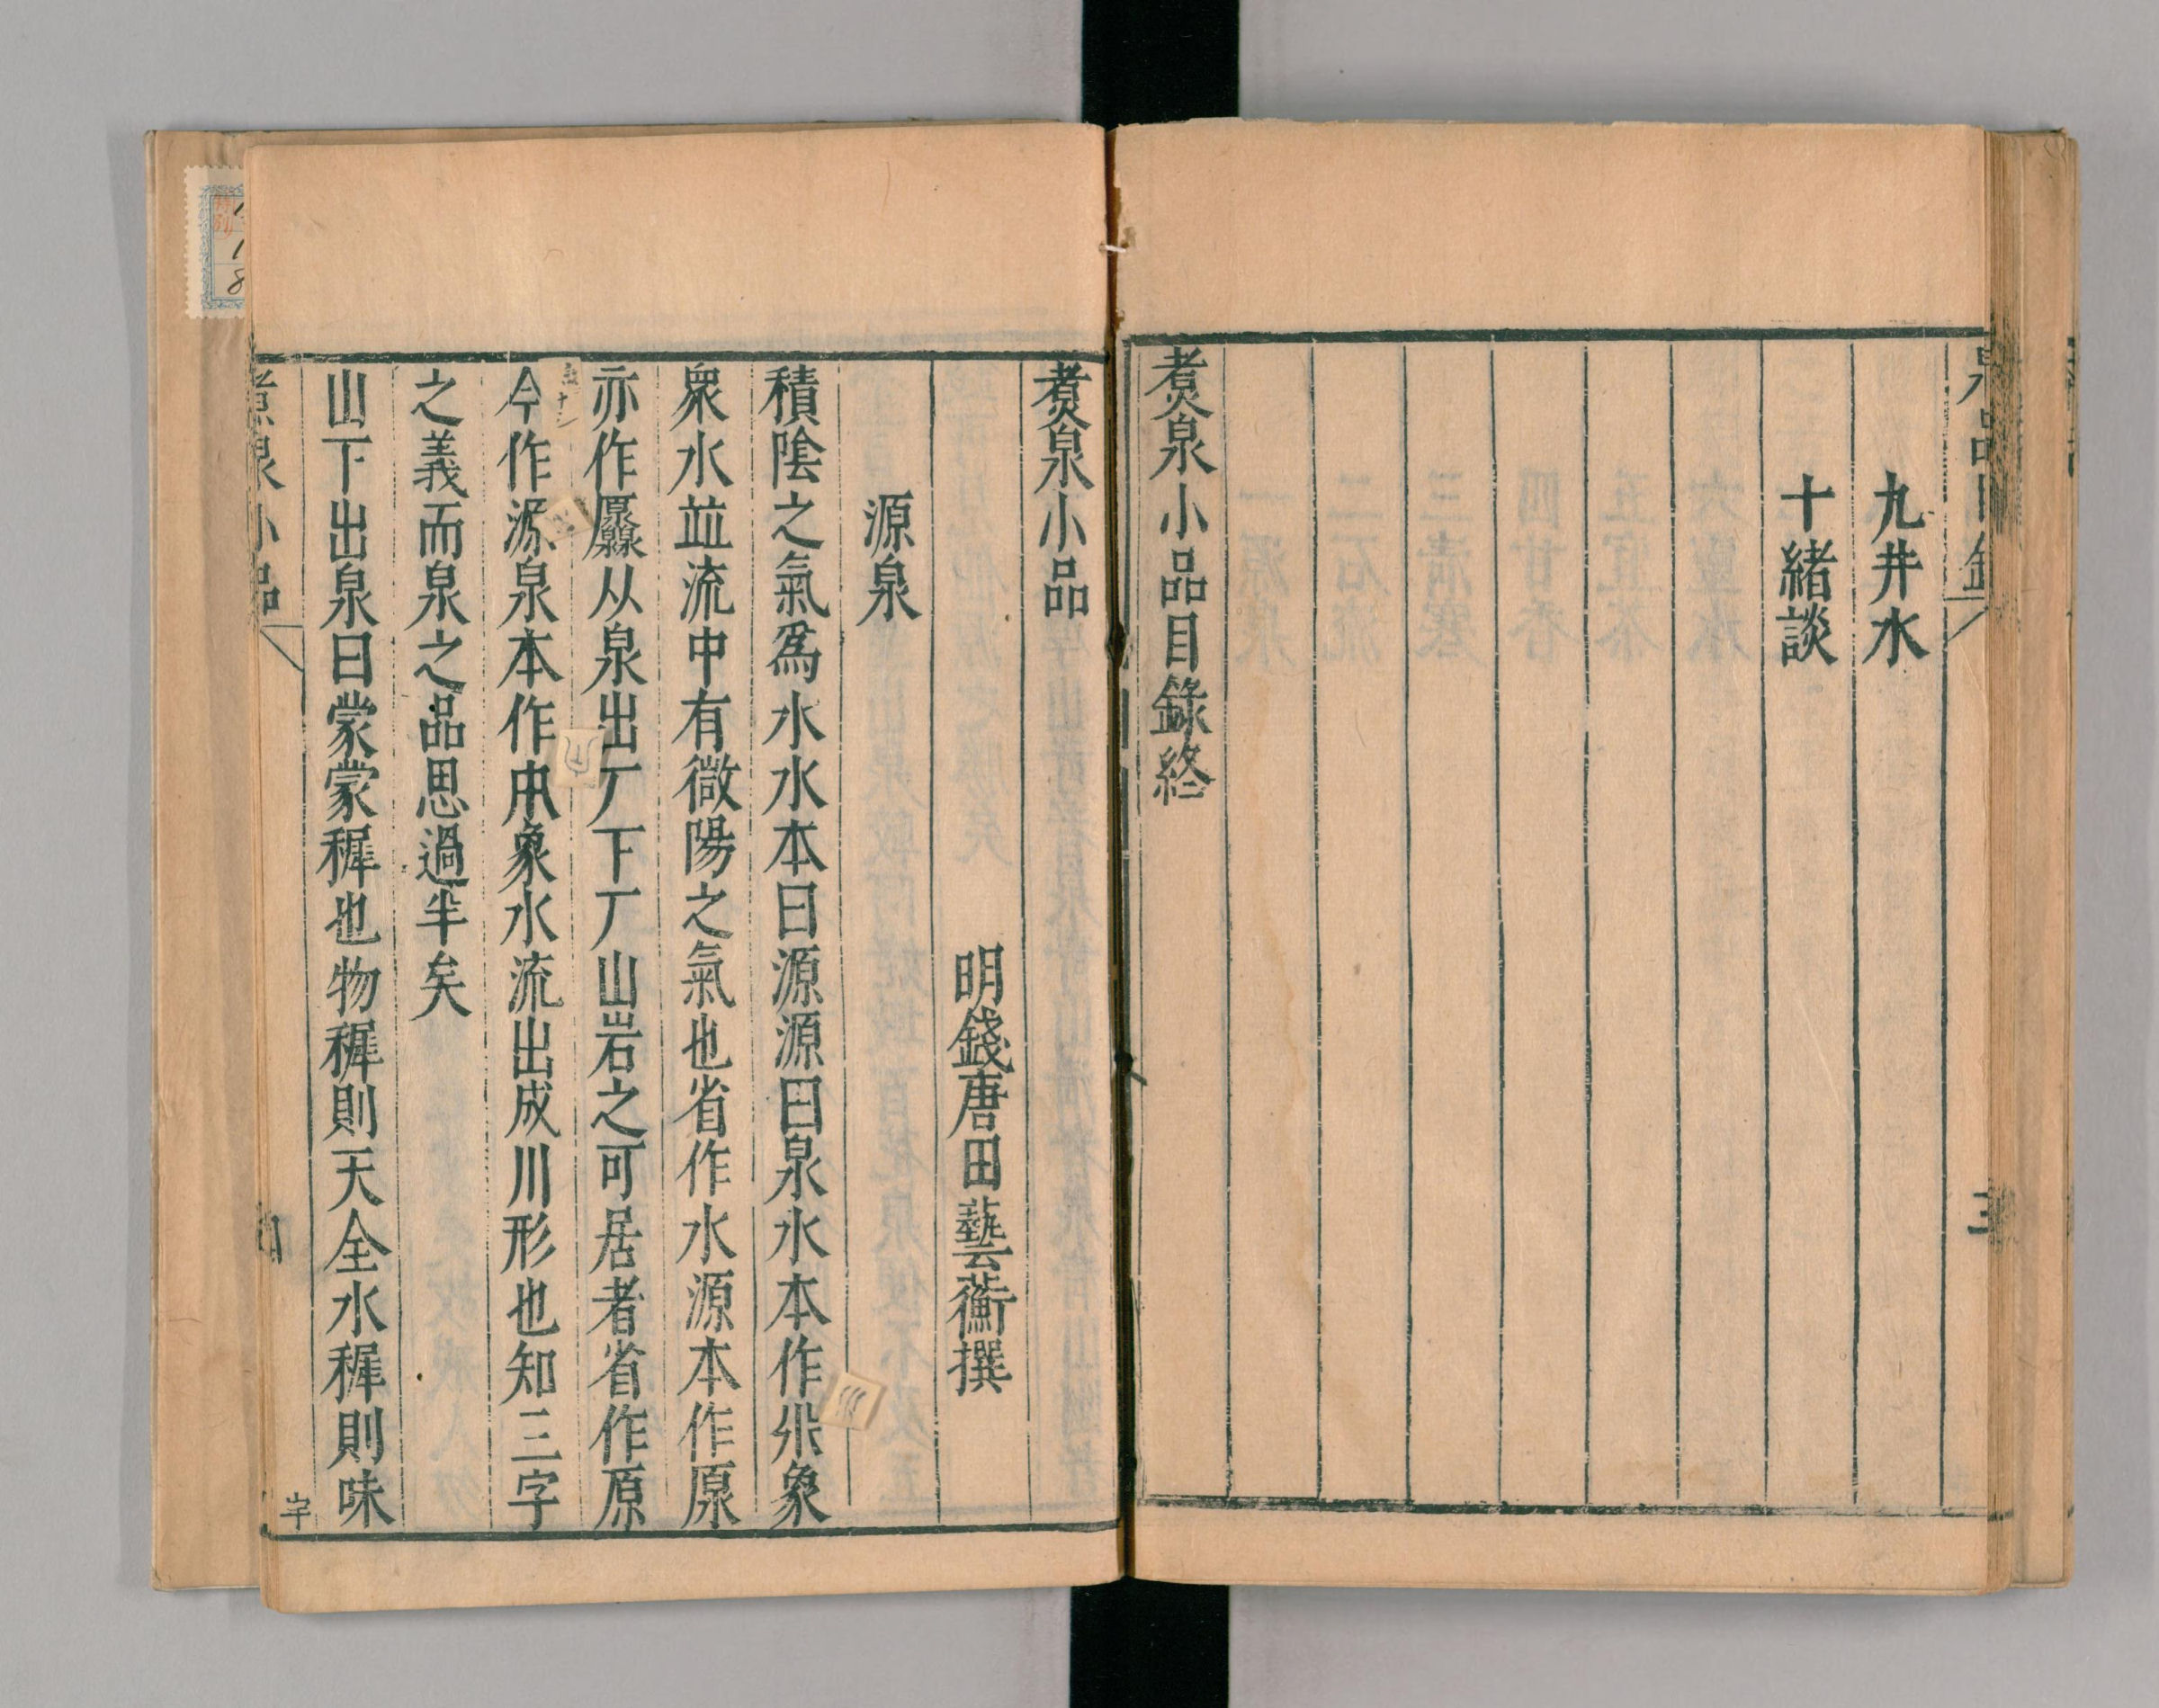 九井水
十緒談
煑泉小品目錄終
煑泉小品
明錢唐田藝蘅撰
源泉
積陰之氣爲水水本曰源源曰泉水本作𣱱象
衆水並流中有微陽之氣也省作水源本作原
亦作厵从泉出厂下厂山岩之可居者省作原
今作源泉本作𤽄象水流出成川形也知三字
之義而泉之品思過半矣
山下出泉曰蒙蒙穉也物穉則天全水穉則味
煑泉小品
四
宇